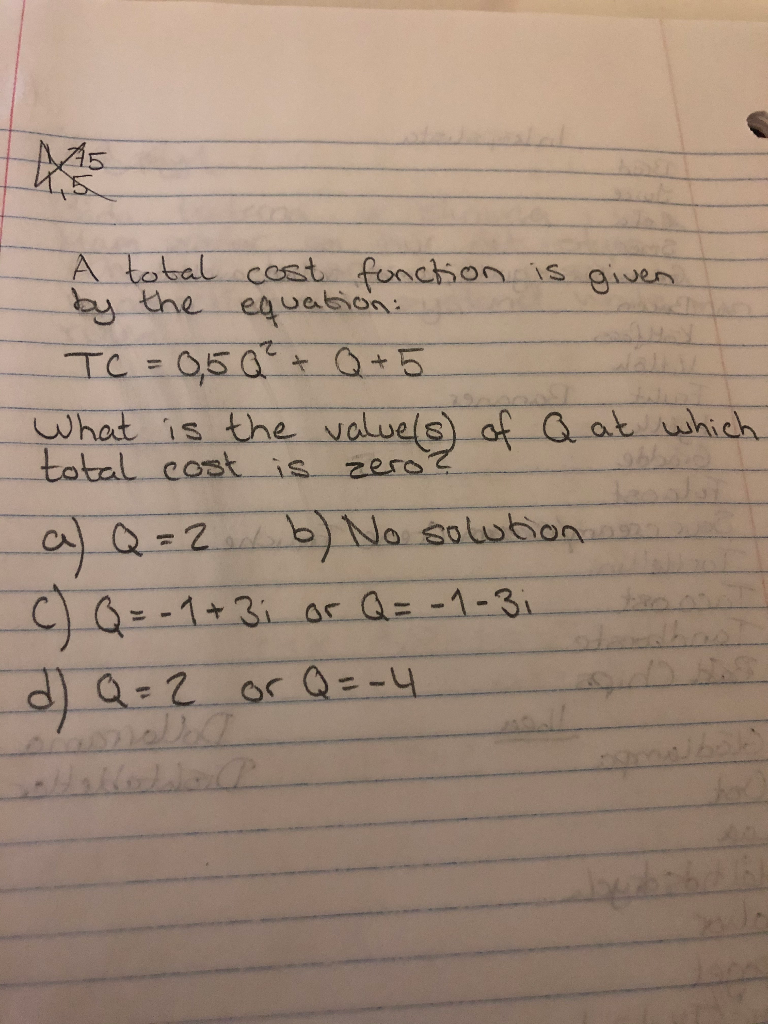 A total cost function is given
by the equation:
TC = 0,5 Q² + Q + 5
What is the value(s) of Q at which
total cost is zero?
a) Q = 2 b) No solution
c) Q = -1 + 3i or Q = -1 - 3i
d) Q = 2 or Q = -4